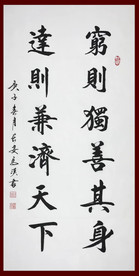 窮則獨善其身
達則兼濟天下
庚子春月長安志洪書